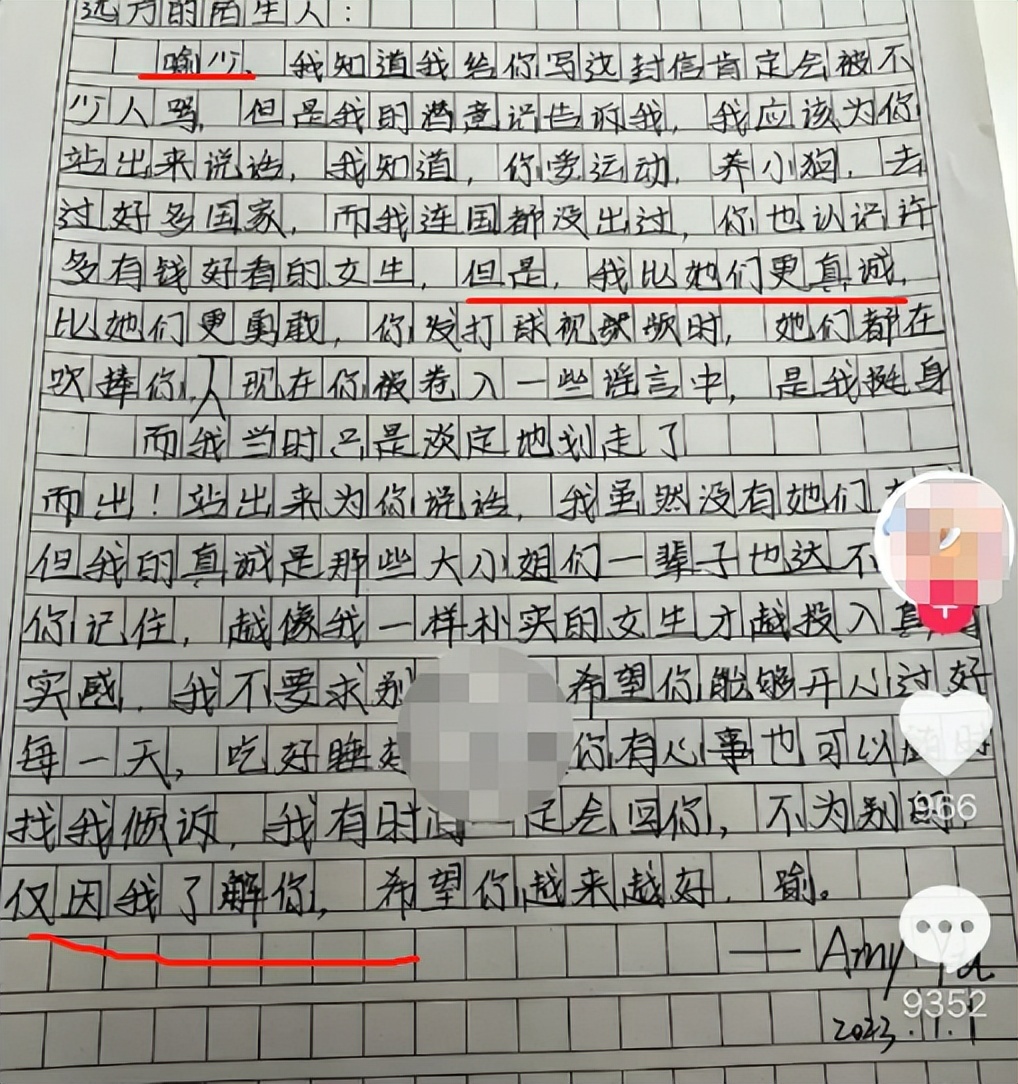 远方的陌生人：
喻少、我知道我给你写这封信肯定会被不
少人骂，但是我的潜意识告诉我，我应该为你
站出来说话，我知道，你爱运动，养小狗，去
过好多国家，而我连国都没出过，你也认识许
多有钱好看的女生，但是，我比她们更真诚，
比她们更勇敢，你发打球视频时，她们都在
吹捧你，现在你被卷入一些谣言中，是我挺身
而我当时只是淡定地划走了
而出！站出来为你说话，我虽然没有她们
但我的真诚是那些大小姐们一辈子也达不
你记住，越像我一样朴实的女生才越投入真
实感，我不要求别 希望你能够开心过好
每一天，吃好睡 你有心事也可以随时
找我倾诉，我有时 一定会回你，不为别的，
仅因我了解你，希望你越来越好，喻。
—— Amy
2023.1.1
966
9352